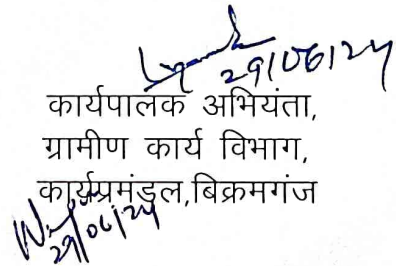 29/06/24
कार्यपालक अभियंता,
ग्रामीण कार्य विभाग,
कार्यप्रमंडल,बिक्रमगंज
29/06/24